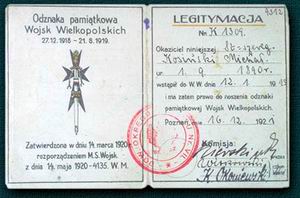 Odznaka pamiątkowa
Wojsk Wielkopolskich
27.12.1918 - 21.8.1919.
Zatwierdzona w dniu 14. marca 1920
rozporządzeniem M.S. Wojsk.
z dnia 14. maja 1920-4135. W.M.
9312
LEGITYMACJA
No K 1309.
Okaziciel niniejszej St. szereg.
Kosiński Michał
ur. 1. 9. 1890r.
wstąpił do W.W. dnia 12. 1. 19
i ma zatem prawo do noszenia odznaki
pamiątkowej Wojsk Wielkopolskich.
Poznań, 16. 12. 1921
Komisja: